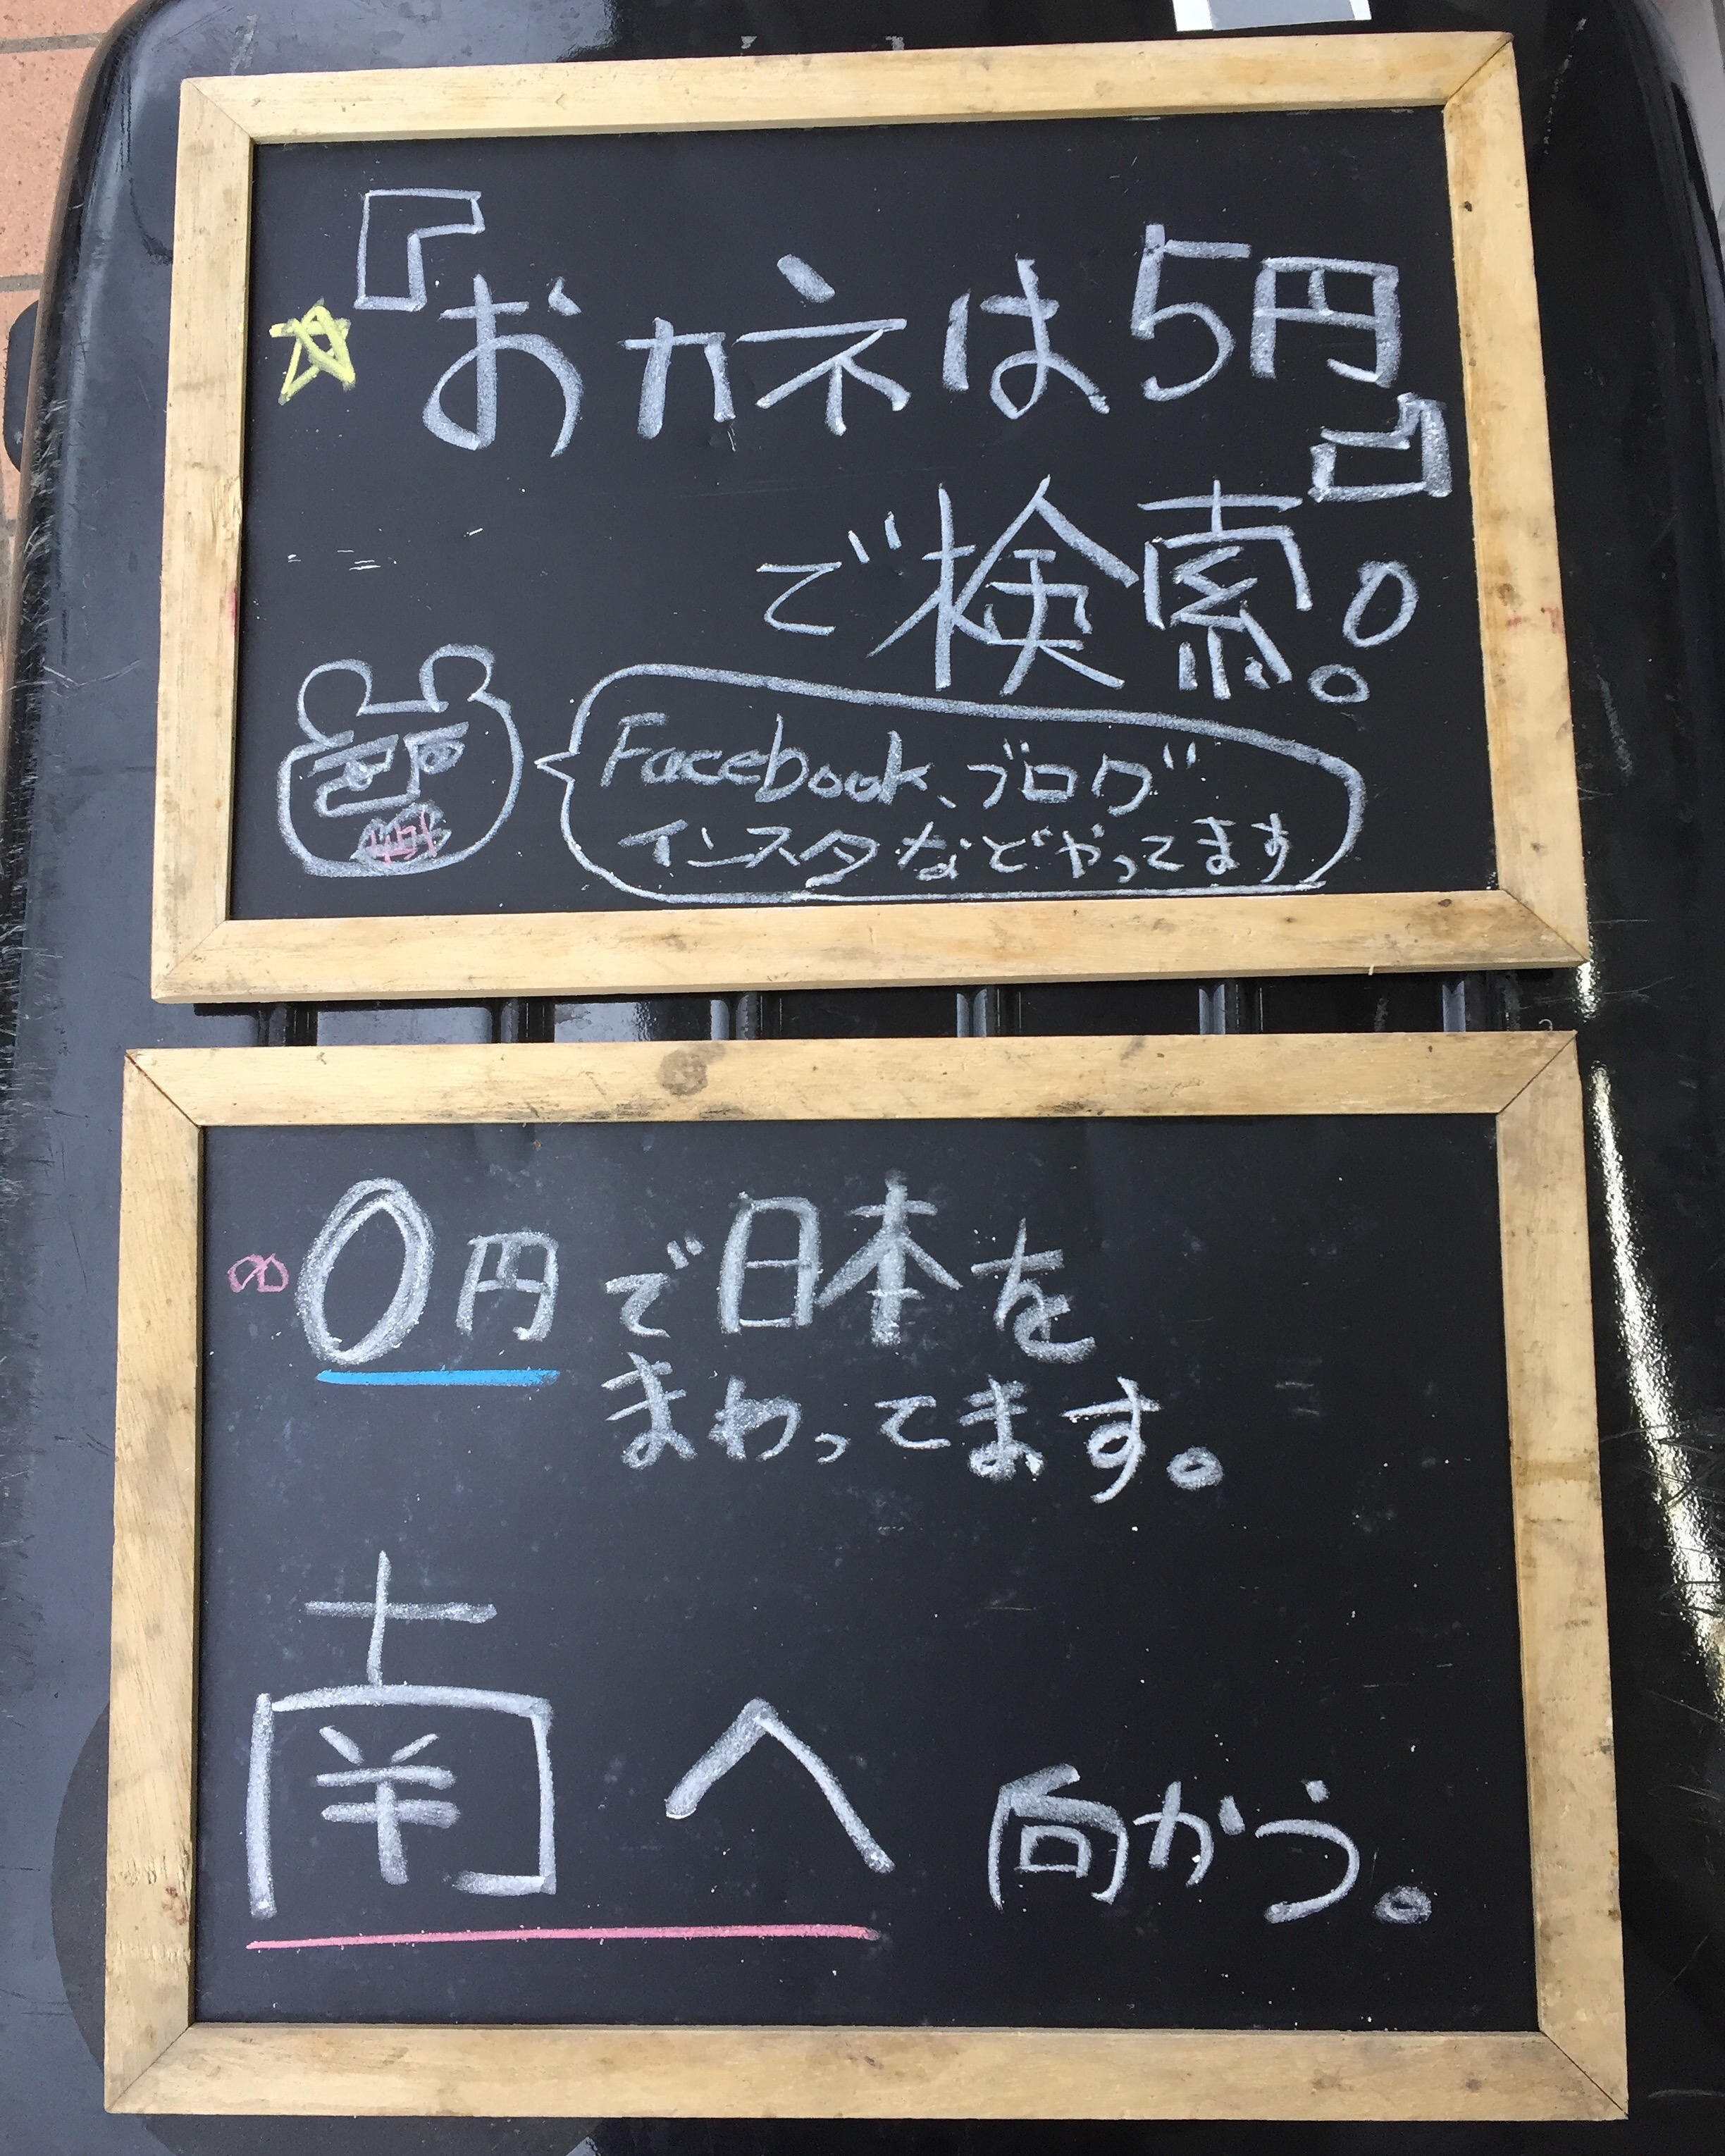 『おカネは5円』
で検索。
Facebook、ブログ
インスタなどやってます
0円で日本を
まわってます。
南へ向かう。